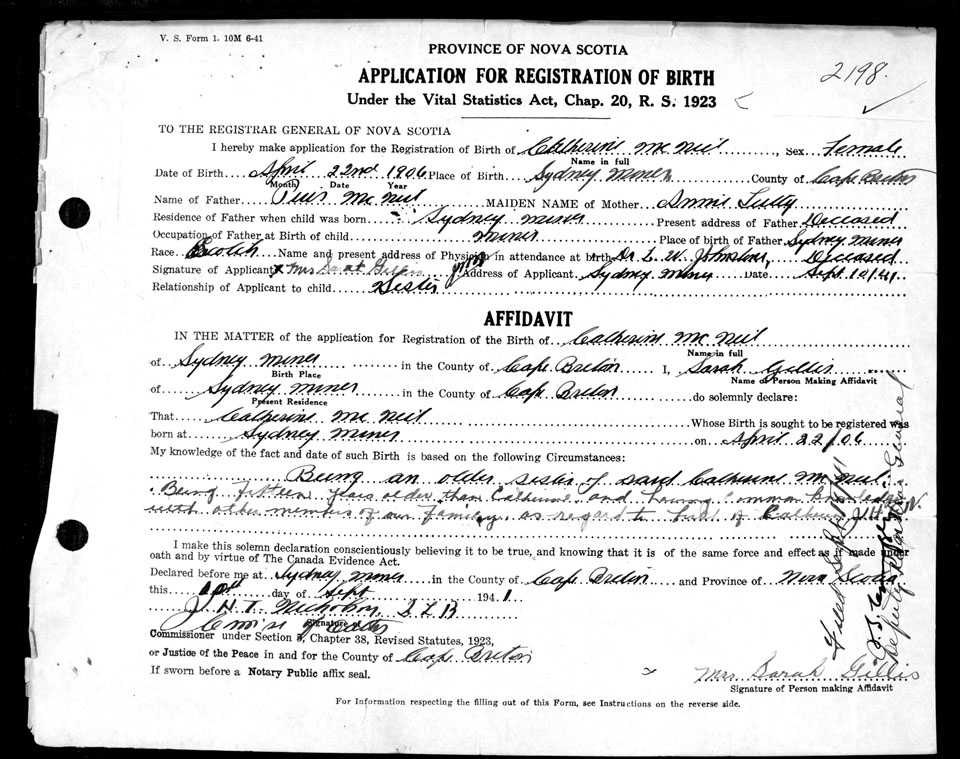 V. S. Form 1. 10M 6-41
PROVINCE OF NOVA SCOTIA
APPLICATION FOR REGISTRATION OF BIRTH
2198.
Under the Vital Statistics Act, Chap. 20, R. S. 1923
TO THE REGISTRAR GENERAL OF NOVA SCOTIA
I hereby make application for the Registration of Birth of Catherine Mc Neil, Sex Female
Name in full
Date of Birth April 22nd 1906 Place of Birth Sydney Mines County of Cape Breton
Month Date Year
Name of Father Mc Neil MAIDEN NAME of Mother Annie
Residence of Father when child was born Sydney Mines Present address of Father Deceased
Occupation of Father at Birth of child Miner Place of birth of Father Sydney Mines
Race Scotch Name and present address of Physician in attendance at birth Dr. L. W. Johnstone, Deceased
Signature of Applicant x Mrs Sarah Gillis Address of Applicant Sydney Mines Date Sept. 10/41
Relationship of Applicant to child Sister
AFFIDAVIT
IN THE MATTER of the application for Registration of the Birth of Catherine Mc Neil
Name in full
of Sydney Mines in the County of Cape Breton I, Sarah Gillis
Birth Place Name of Person Making Affidavit
of Sydney Mines in the County of Cape Breton do solemnly declare:
Present Residence
That Catherine Mc Neil Whose Birth is sought to be registered was
born at Sydney Mines on April 22/06
My knowledge of the fact and date of such Birth is based on the following Circumstances:
Being an older sister of said Catherine Mc Neil.
Being fifteen years older than Catherine and having common knowledge
with other members of our family, as regard to birth of Catherine
I make this solemn declaration conscientiously believing it to be true, and knowing that it is of the same force and effect as if made under
oath and by virtue of The Canada Evidence Act.
Declared before me at Sydney Mines in the County of Cape Breton and Province of Nova Scotia
this 10th day of Sept 1941
Signature
Commissioner under Section 5, Chapter 38, Revised Statutes, 1923,
or Justice of the Peace in and for the County of Cape Breton
If sworn before a Notary Public affix seal.
Mrs. Sarah Gillis
Signature of Person making Affidavit
For Information respecting the filling out of this Form, see Instructions on the reverse side.
Deputy Registrar General